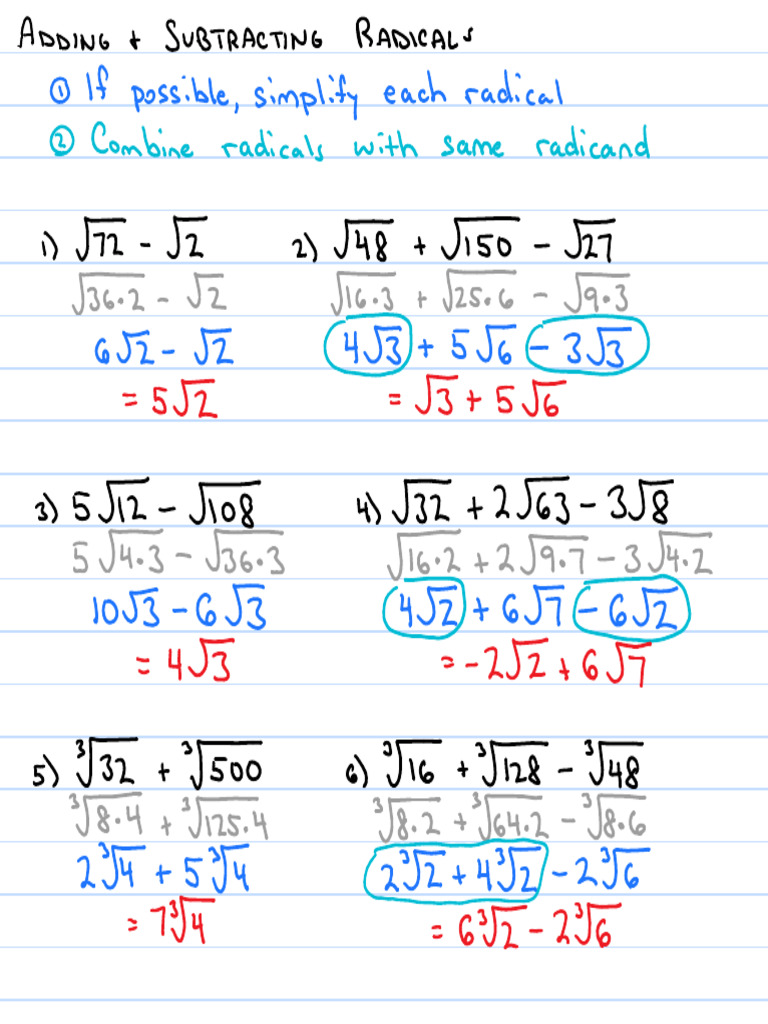 ADDING + SUBTRACTING RADICALS
① If possible, simplify each radical
② Combine radicals with same radicand
1) √72 - √2
√36·2 - √2
6√2 - √2
= 5√2
2) √48 + √150 - √27
√16·3 + √25·6 - √9·3
4√3 + 5√6 - 3√3
= √3 + 5√6
3) 5√12 - √108
5√4·3 - √36·3
10√3 - 6√3
= 4√3
4) √32 + 2√63 - 3√8
√16·2 + 2√9·7 - 3√4·2
4√2 + 6√7 - 6√2
= -2√2 + 6√7
5) ∛32 + ∛500
∛8·4 + ∛125·4
2∛4 + 5∛4
= 7∛4
6) ∛16 + ∛128 - ∛48
∛8·2 + ∛64·2 - ∛8·6
2∛2 + 4∛2 - 2∛6
= 6∛2 - 2∛6